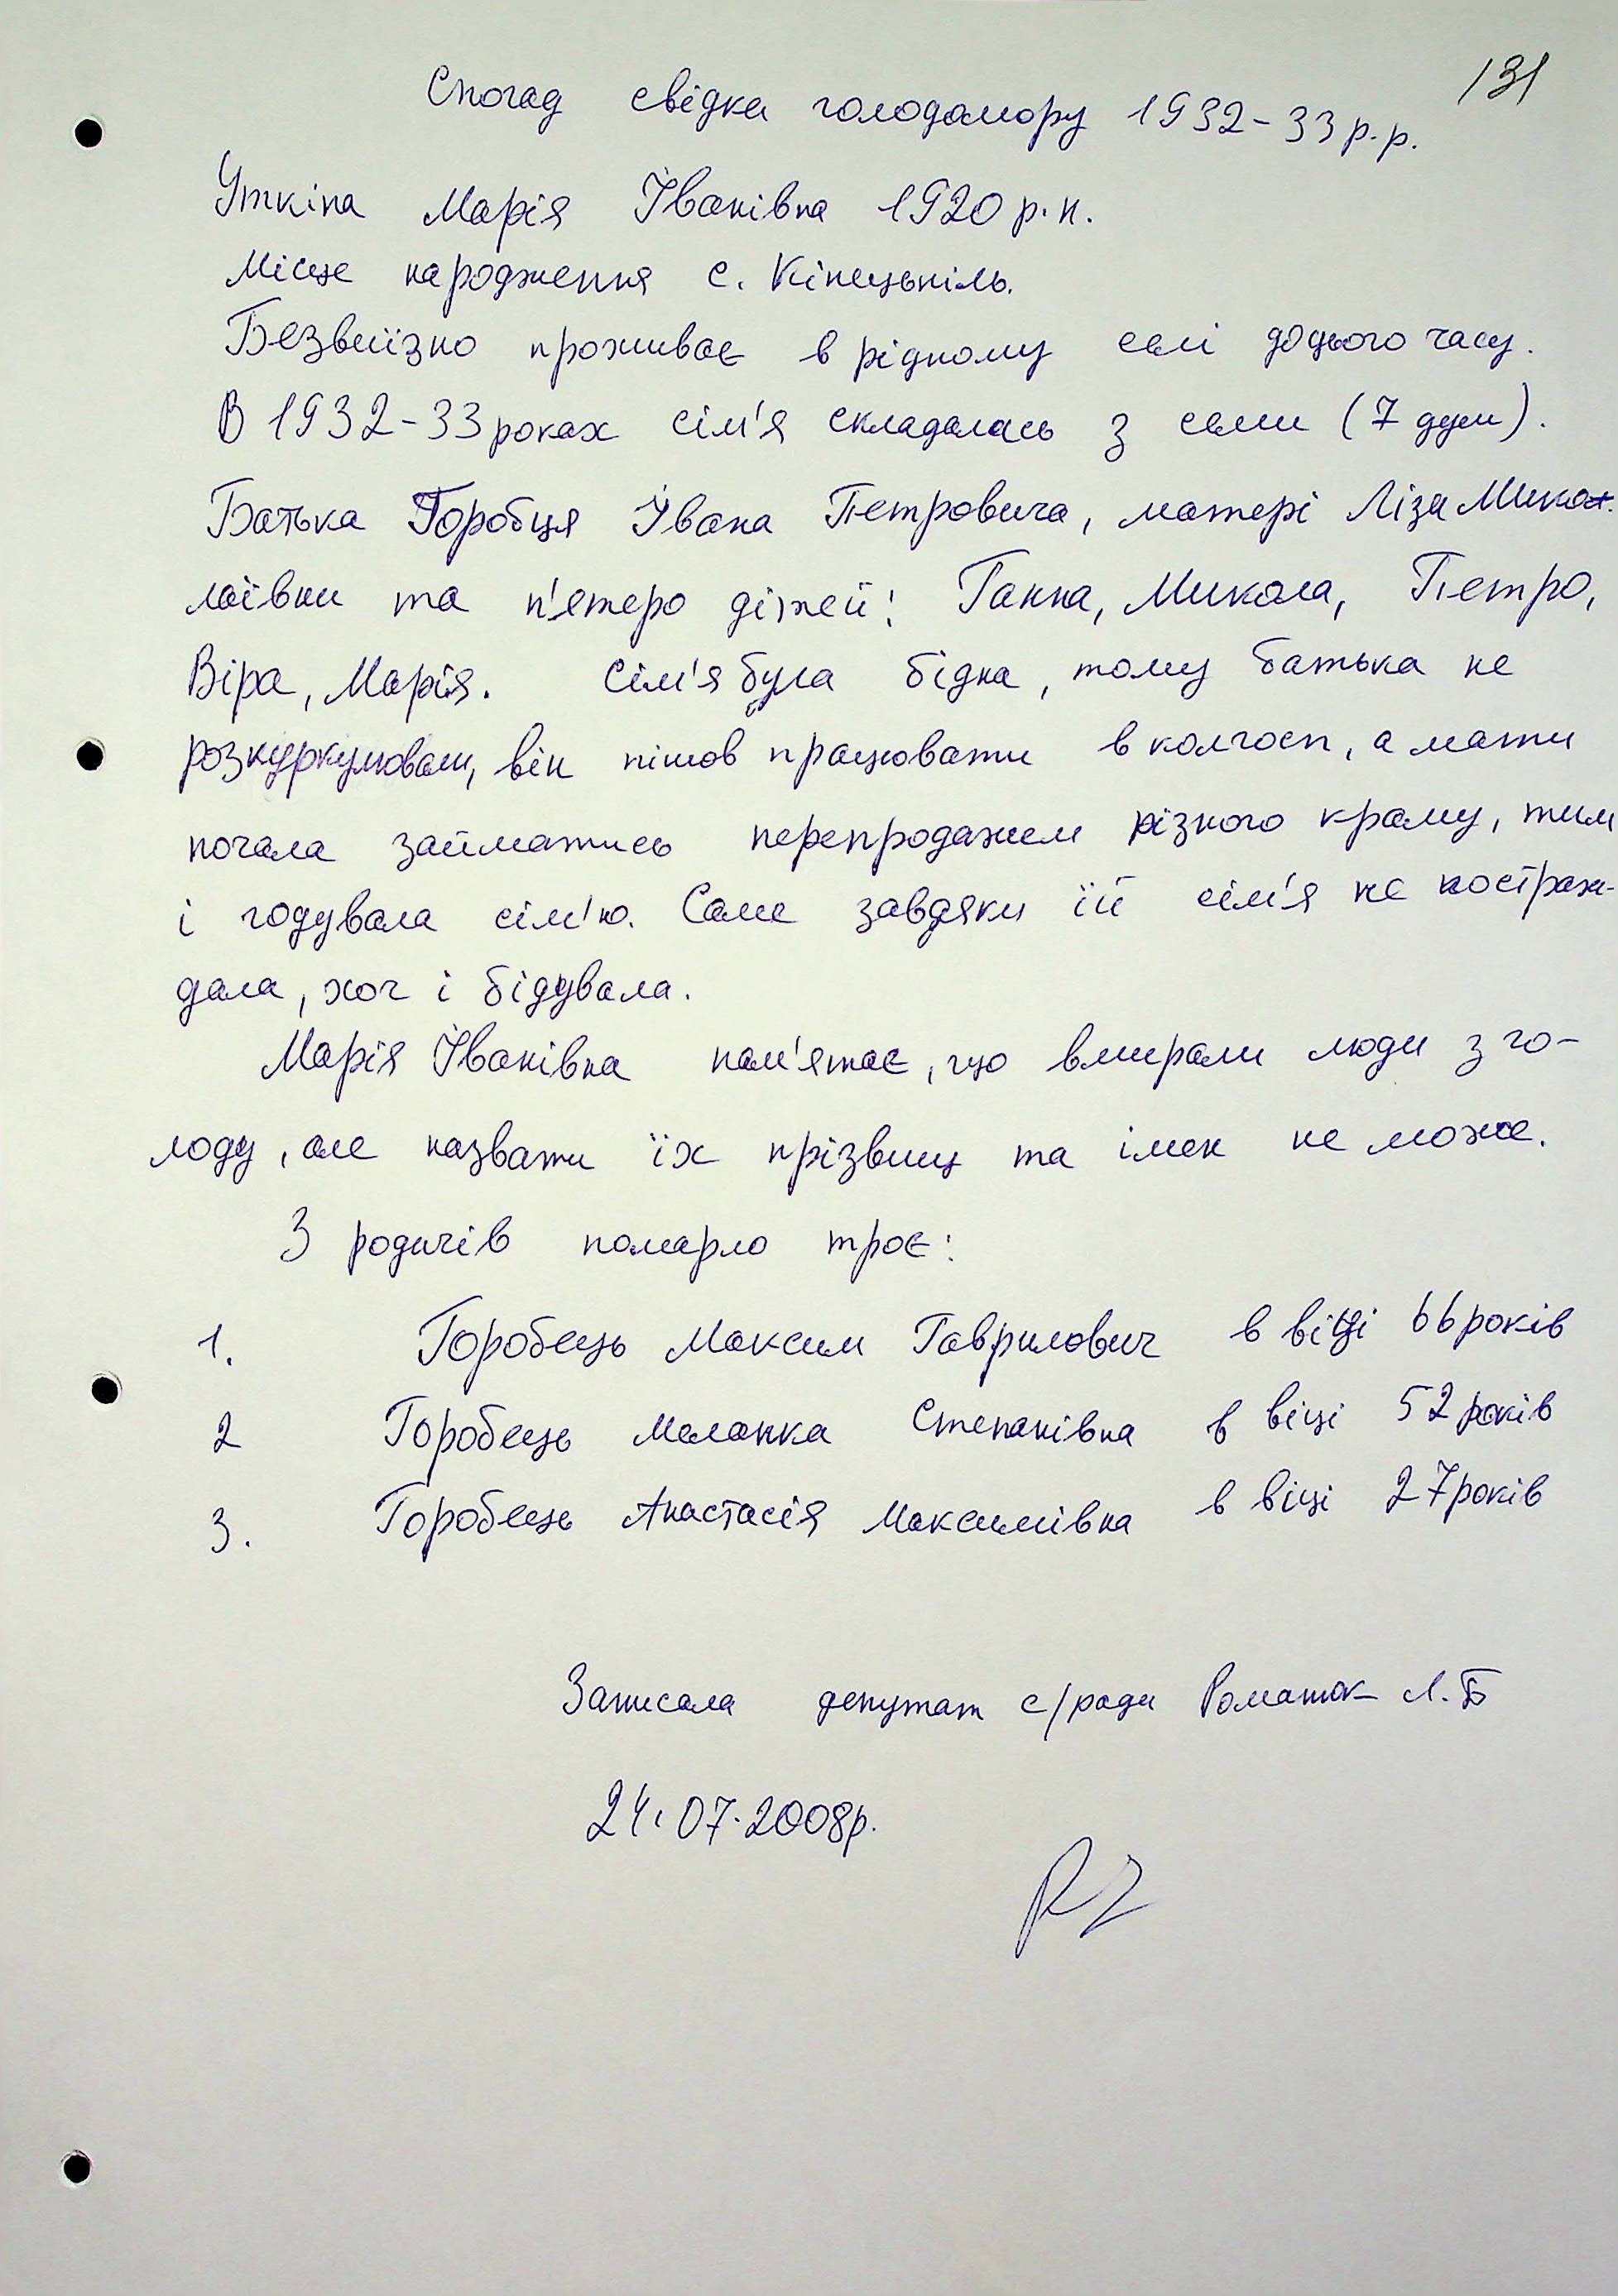 131
Спогад свідка голодомору 1932-33 р.р.
Уткіна Марія Іванівна 1920 р.н.
Місце народження с. Кінецьпіль.
Безвиїзно проживає в рідному селі до цього часу.
В 1932-33 роках сім'я складалась з семи (7 душ).
Батька Горобця Івана Петровича, матері Ліза Мико-
лаївни та п'ятеро дітей: Ганна, Микола, Петро,
Віра, Марія. Сім'я була бідна, тому батька не
розкуркулювали, він пішов працювати в колгосп, а мати
почала займатись перепродажем різного краму, тим
і годувала сім'ю. Саме завдяки їй сім'я не постраж-
дала, хоч і бідувала.
Марія Іванівна пам'ятає, що вмирали люди з го-
лоду, але назвати їх прізвищ та імен не може.
З родичів померло троє:
1. Горобець Максим Гаврилович в віці 66 років
2 Горобець Меланка Степанівна в віці 52 років
3. Горобець Анастасія Максимівна в віці 27 років
Записала депутат с/ради Романюк Л.Б
24.07.2008р.